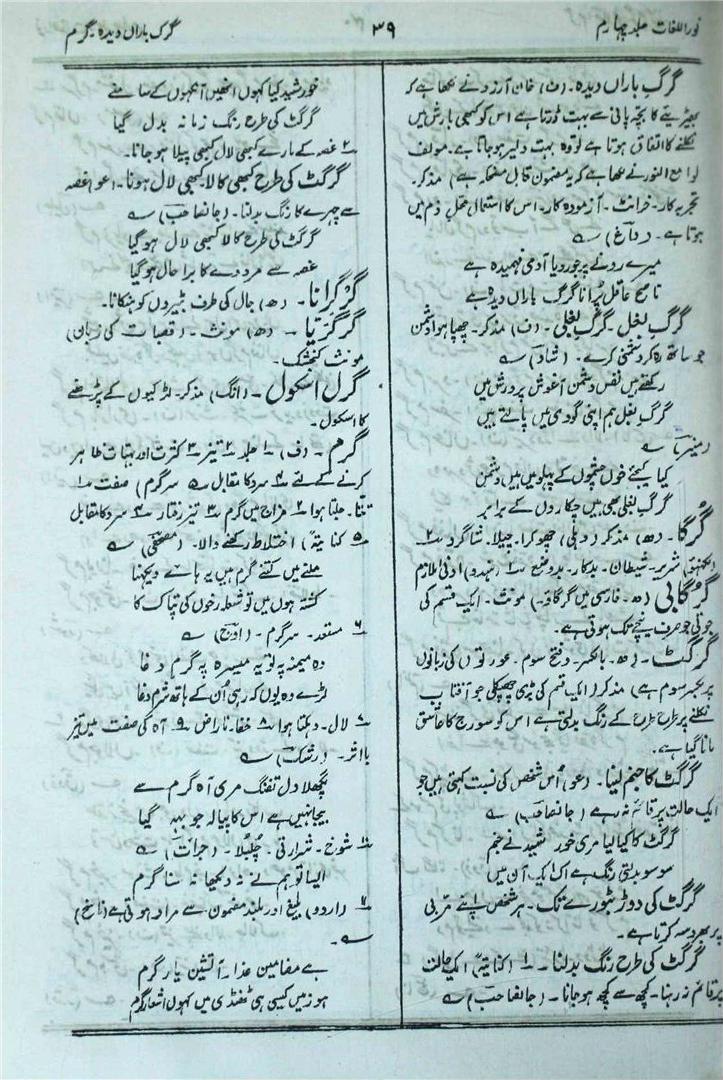 نور اللغات جلد چہارم
۳۹
گرگ باراں دیدہ ۔ گرم
گرگِ باراں دیدہ۔ (ف) خان آرزو نے لکھا ہے کہ
بھیڑیے کا بچہ پانی سے بہت ڈرتا ہے اس کو کبھی بارش میں
نکلنے کا اتفاق ہوتا ہے تو وہ بہت دلیر ہوجاتا ہے۔ مولف
لوامع النور نے لکھا ہے کہ یہ مضمون قابل مضحکہ ہے) مذکر۔
تجربہ کار۔ خرانٹ۔ آزمودہ کار۔ اس کا استعمال محلِ ذم میں
ہوتا ہے۔ (داغ) ؎
میرے رونے پر جو رویا آدمی فہمیدہ ہے
ناصح عاقل پُرانا گرگِ باراں دیدہ ہے
گرگِ بغل۔ گرگِ بغلی۔ (ف) مذکر۔ چھپا ہوا دشمن
جو ساتھ رہ کر دشمنی کرے۔ (شاد) ؎
رکھتے ہیں نفس دشمن آغوش پرورش میں
گرگِ بغل ہم اپنی گودی میں پالتے ہیں
(منیر) ؎
کیا کیجئے خوں بچوں کے پہلو میں ہیں دشمن
گرگِ بغلی بھی ہیں چکاروں کے برابر
گُرگا۔ (ھ) مذکر (دہلی) چھوکرا۔ چیلا۔ شاگرد ۲
(لکھنؤ) شریر۔ شیطان۔ بدکار۔ بدوضع ۳ (ہندو) ادنیٰ ملازم
گرگابی (ھ۔ فارسی میں گرگاؤ۔) مونث۔ ایک قسم کی
جوتی جو صرف پنجے تک ہوتی ہے۔
گرگٹ۔ (ھ۔ بالکسر۔ و فتح سوم۔ عورتوں کی زبانوں
پر بکسر سوم ہے) مذکر (ایک قسم کی بڑی چھپکلی جو آفتاب
نکلنے پر طرح طرح کے رنگ بدلتی ہے اس کو سورج کا عاشق
مانا گیا ہے۔
گرگٹ کا جنم لینا۔ (عو) اُس شخص کی نسبت کہتی ہیں جو
ایک حالت پر قائم نہ رہے (جانصاحب) ؎
گرگٹ کا کیا لیا مری خورشید نے جنم
سو سو بدلتی رنگ ہے اک ایک آن میں
گرگٹ کی دوڑ بٹورے تک۔ ہر شخص اپنے مربی
پر بھروسہ کرتا ہے۔
گرگٹ کی طرح رنگ بدلنا۔ ۱ (کنایۃً) ایک حالت
پر قائم نہ رہنا۔ کچھ سے کچھ ہوجانا۔ (جانصاحب) ؎
خورشید کیا کہوں انھیں آنکھوں کے سامنے
گرگٹ کی طرح رنگ زمانہ بدل گیا
۲ غصہ کے مارے کبھی لال کبھی پیلا ہوجانا۔
گرگٹ کی طرح کبھی کالا کبھی لال ہونا۔ (عو) غصہ
سے چہرے کا رنگ بدلنا۔ (جانصاحب) ؎
گرگٹ کی طرح کالا کبھی لال ہوگیا
غصہ سے مردوے کا برا حال ہوگیا
گرگرانا۔ (ھ) جال کی طرف بٹیروں کو ہنکانا۔
گرگزیا ۔ (ھ) مونث۔ (قصبات کی زبان)
مونث کنجشک۔
گرل اسکول۔ (انگ) مذکر۔ لڑکیوں کے پڑھنے
کا اسکول۔
گرم۔ (ف) ۱ جلد ۲ تیز ۳ کثرت اور بہتات ظاہر
کرنے کے لئے ۴ سرد کا مقابل ۵ سرگرم) صفت ۱
تپتا۔ جلتا ہوا ۲ مزاج میں گرم ۳ تیز رفتار ۴ سرد کا مقابل
۵ کنایتہً) اختلاط رکھنے والا۔ (مصحفی) ؎
ملنے میں کتنے گرم ہیں یہ ہائے دیکھنا
کشتہ ہوں میں تو شعلہ رخوں کی تپاک کا
۶ مستعد۔ سرگرم۔ (اوج) ؎
وہ میمنہ پہ تو یہ میسرہ پہ گرم دغا
لڑے وہ یوں کہ رہی اُن کے ہاتھ شرم دغا
۷ لال۔ دہکتا ہوا ۸ خفا۔ ناراض ۹ آہ کی صفت میں تیز
بااثر۔ (رشک) ؎
پگھلا دل تفنگ مری آہ گرم سے
بیجا نہیں ہے اس کا پیالہ جو بہہ گیا
۱۰ شوخ۔ شرارتی۔ چُلبُلا۔ (جرأت) ؎
ایسا تو ہم نے نہ دیکھا نہ سنا گرم
۱۱ (اردو) بلیغ اور بلند مضمون سے مراد ہوتی ہے (ناسخ)
؎
ہے مضامین عذار آتشین یار گرم
ہو زمیں کیسی ہی ٹھنڈی میں کہوں اشعار گرم